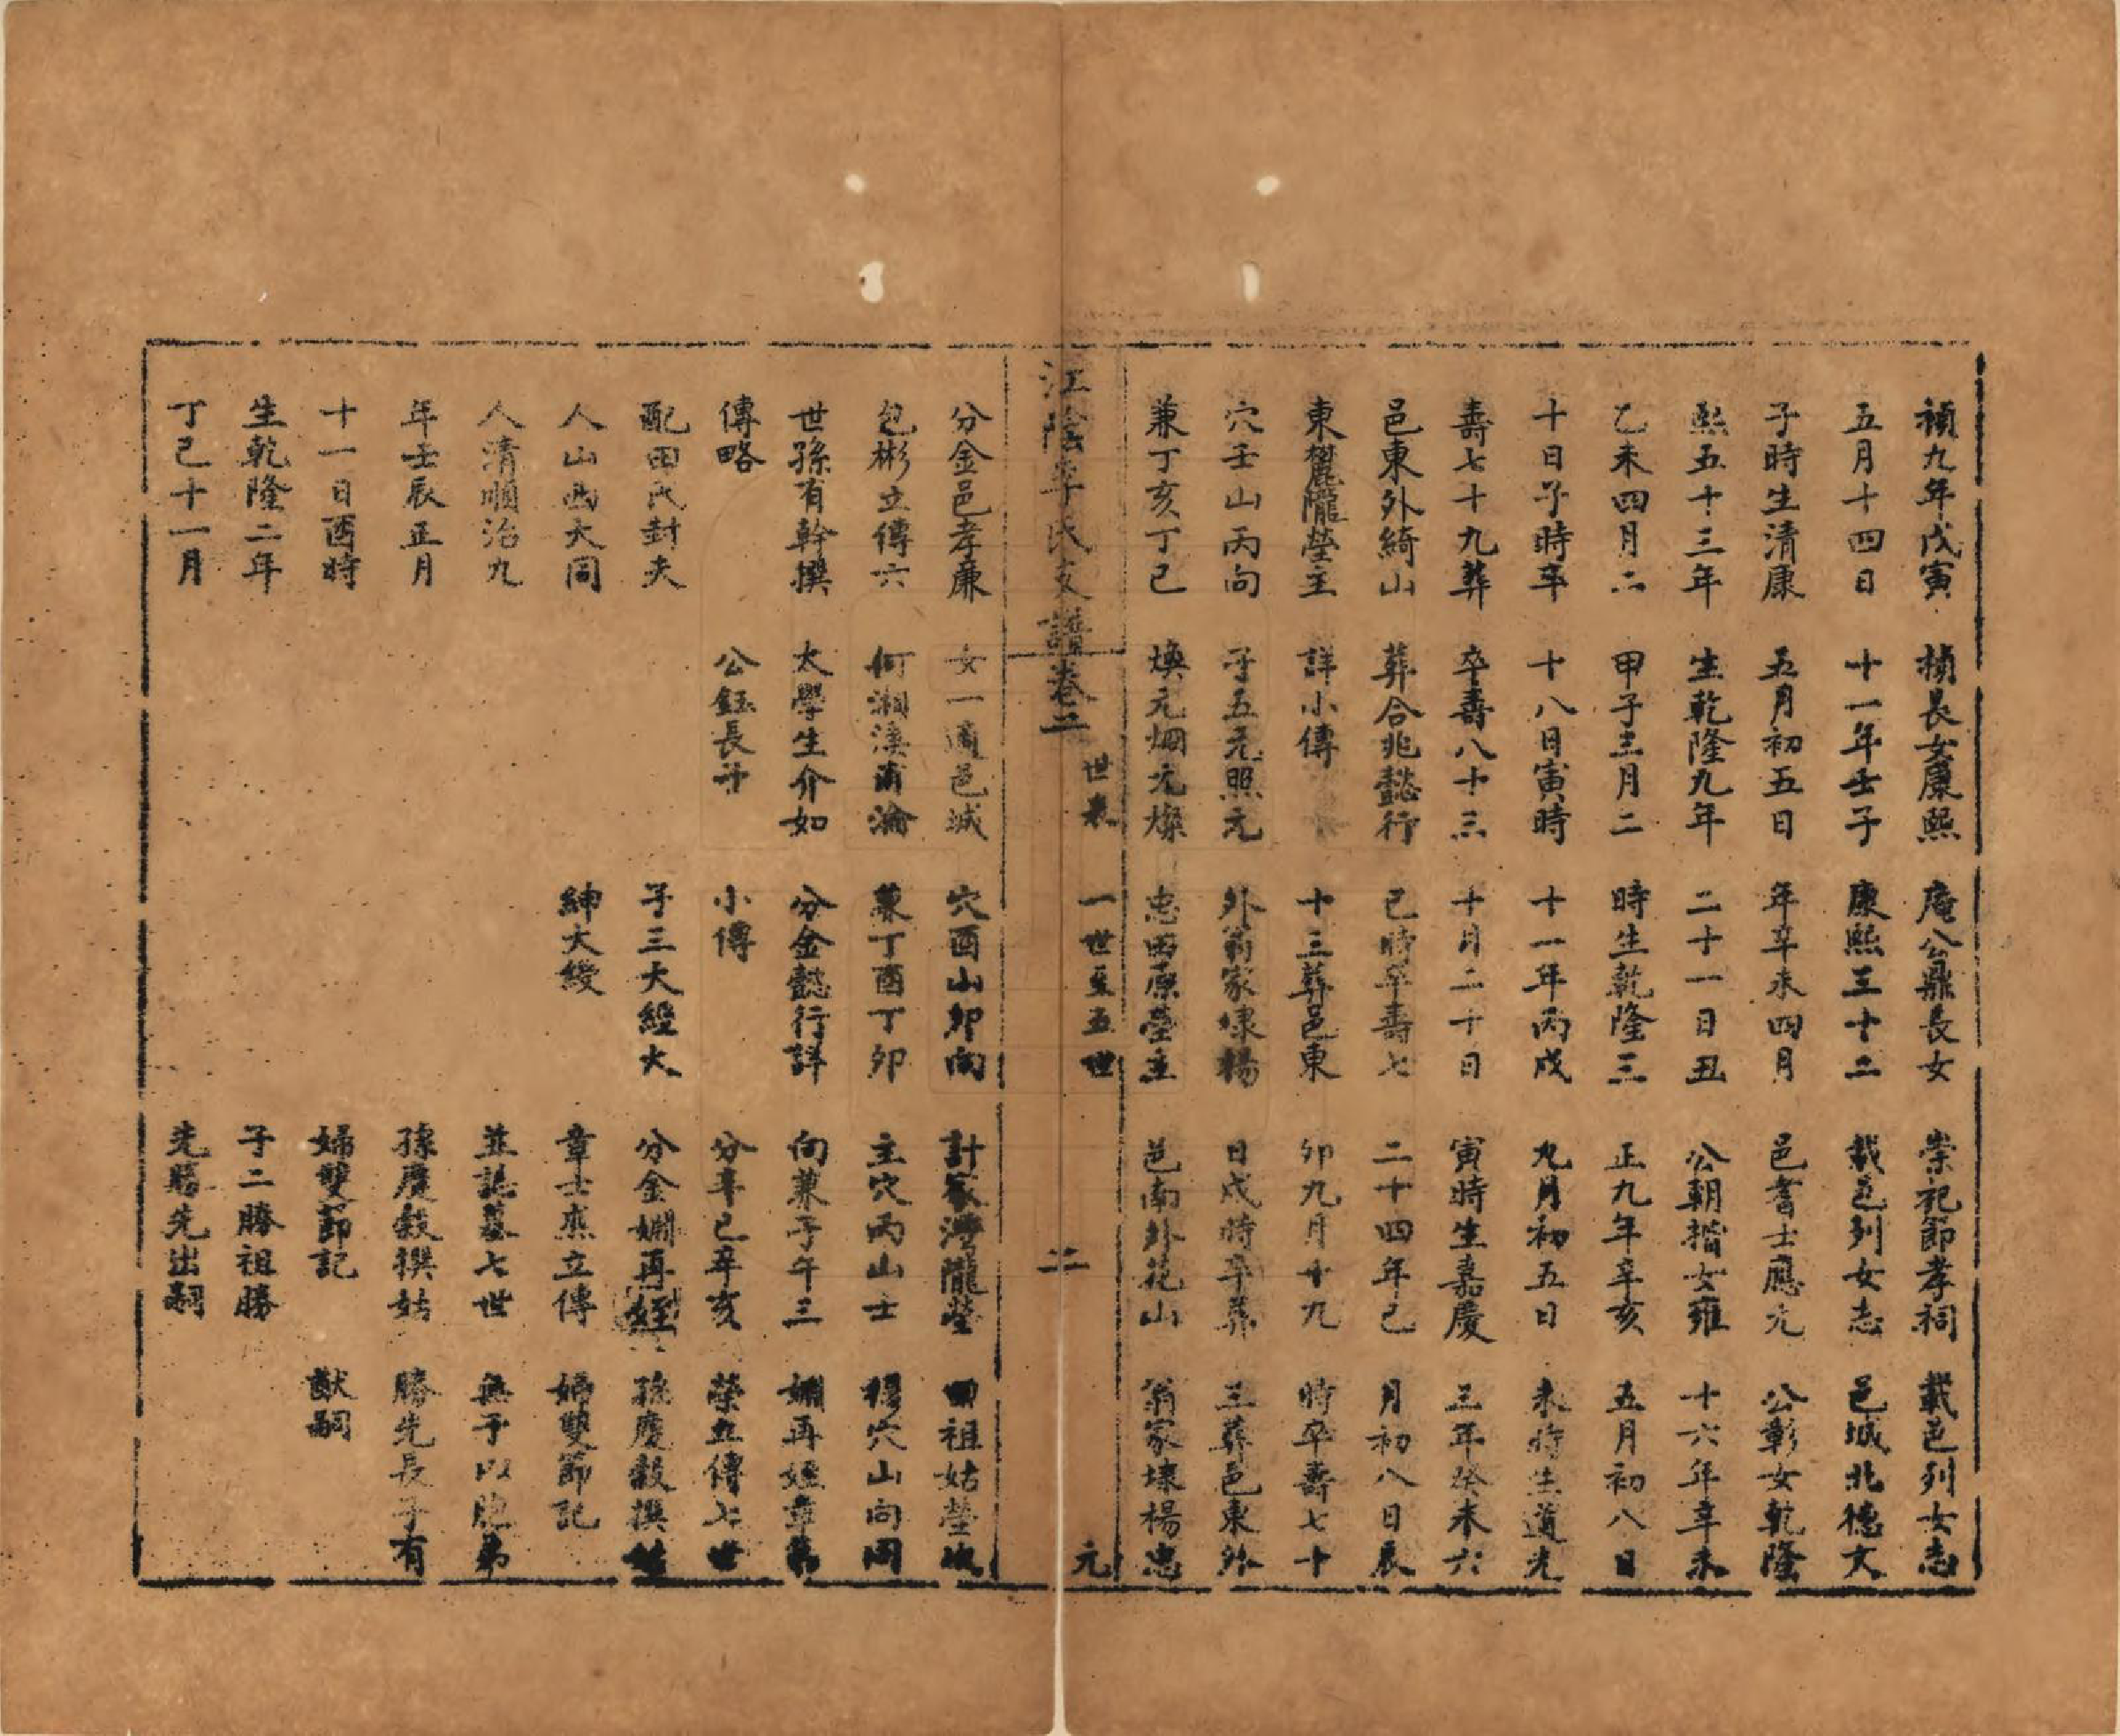 禎九年戊寅
五月十四日
子時生清康
熙五十三年
乙未四月二
十日子時卒
壽七十九葬
邑東外綺山
東麓隴塋主
穴壬山丙向
兼丁亥丁巳
楨長女康熙
十一年壬子
五月初五日
生乾隆九年
甲子月二
十八日寅時
卒壽八十三
葬合兆懿行
詳小傳
子五元照元
煥元烟元燦
庵公鼎長女
康熙三十二
年辛未四月
二十一日丑
時生乾隆三
十一年丙戌
十月二十日
巳時卒壽七
十三葬邑東
外翁家埭楊
忠西原塋主
崇祀節孝祠
載邑列女志
邑耆士應元
公朝揩女雍
正九年辛亥
九月初五日
寅時生嘉慶
二十四年己
卯九月十九
日戌時卒葬
邑南外花山
載邑列女志
邑城北德文
公彰女乾隆
十六年辛未
五月初八日
未時生道光
三年癸未六
月初八日辰
時卒壽七十
三葬邑東外
翁家埭楊忠
江陰季氏支譜卷二
世表
一世至五世
二
元
分金邑孝廉
包彬立傳六
世孫有幹撰
傳略
配田氏封夫
人山西大同
人清順治九
年壬辰正月
十一日酉時
生乾隆二年
丁巳十一月
女一適邑城
何湘溪甫瀹
太學生介如
公鈺長子
穴酉山卯向
兼丁酉丁卯
分金懿行詳
小傳
子三大經大
紳大綬
計家灣隴塋
主穴丙山士
向兼子午三
分辛巳辛亥
分金嫻再姪
章士杰立傳
並誌墓七世
孫慶穀撰姑
婦雙節記
子二勝祖勝
先勝先出嗣
田祖姑塋
穆穴山向同
嫻再姪章
榮立傳七世
孫慶穀撰姑
婦雙節記
無子以胞弟
勝先長子有
猷嗣